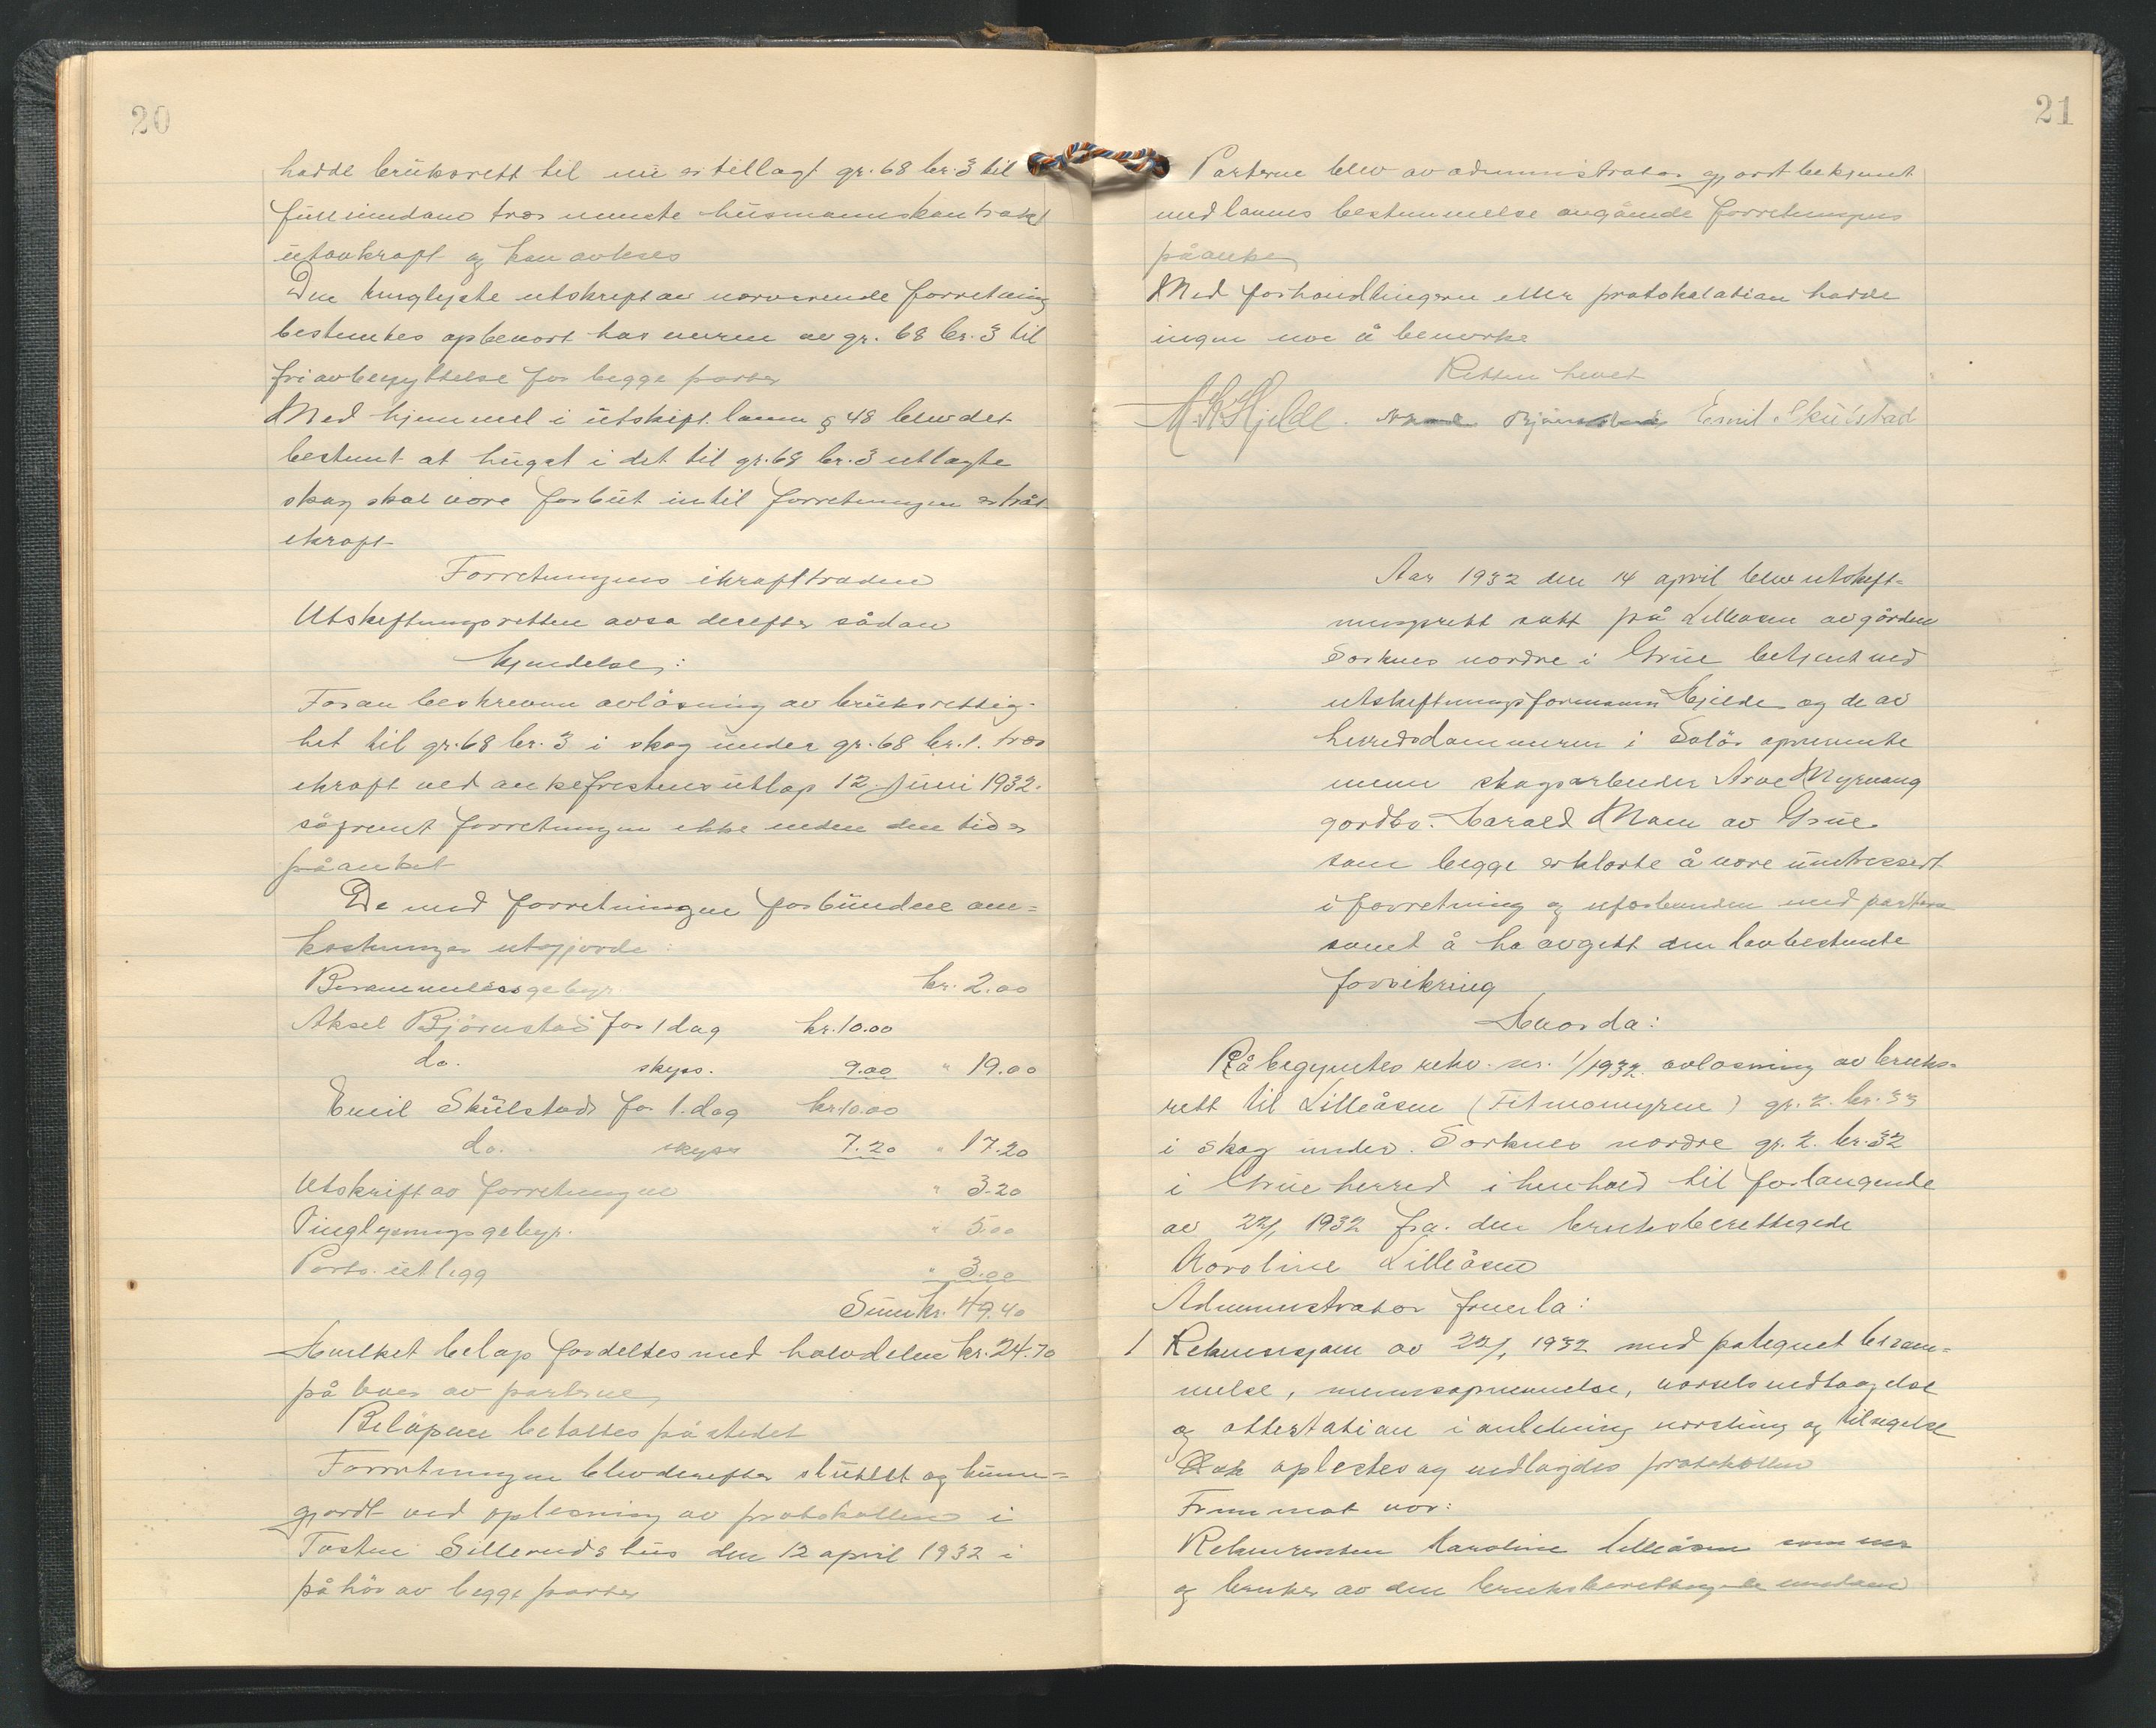 20
hadde bruksrett til nu er tillagt gr. 68 br. 3 til
full eiendom trær nevnte husmannskontrakt
utavkraft og kan avleses
Den tinglyste utskrift av nærværende forretning
bestemtes opbevart hos eieren av gr. 68 br. 3 til
fri avbenyttelse for begge parter
Med hjemmel i utskift. loven § 48 blev det
bestemt at hugst i det til gr. 68 br. 3 utlagte
skog skal være forbut intil forretningen er tråt
ikraft
Forretningens ikrafttræden
Utskiftningsretten avsa derefter sådan
kjendelse:
Foran beskrevne avløsning av bruksrettig-
het til gr. 68 br. 3 i skog under gr. 68 br. 1. træs
ikraft ved ankefristens utløp 12. juni 1932.
såfremt forretningen ikke inden den tid er
påanket
De med forretningen forbundne om=
kostninger utgjorde:
Berammelses gebyr kr. 2.00
Aksel Bjørnstad for 1 dag kr. 10.00
do. skyss. 9.00 " 19.00
Emil Skulstad for 1. dag kr. 10.00
do. skyss 7.20 " 17.20
Utskrift av forretningen " 3.20
Tinglysnings gebyr. " 5.00
Porto. utlegg " 3.00
Sum kr. 49.40
Hvilket beløp fordeltes med halvdelen kr. 24.70
på hver av parterne
Beløpene betaltes på stedet
Forretningen blev derefter sluttet og kunn=
gjordt ved oplesning av protokollen i
Tosten Silleruds hus den 12 april 1932 i
påhør av begge parter
21
Parterne blev av administrator gjort bekjent
med lovens bestemmelse angående forretningens
påanke
Med forhandlingern eller protokolation hadde
ingen noe å bemerke
Retten hevet
A. K. Hjelde. Aksel Bjørnstad Emil Skulstad
Aar 1932 den 14 april blev utskift=
ningsrett satt på Lilleåsen av gården
Sorknes nordre i Grue betjent ved
utskiftningsformann Hjelde og de av
herredsdommeren i Solør opnevnte
menn skogsarbeider Arve Myrvang
gardbr. Harald Moen av Grue
som begge erklærte å være uintressert
i forretning og uforbunden med partene
samt å ha avgitt den lovbestemte
forsikring
Hvorda:
Påbegyntes rekv. nr. 1/1932. avløsning av bruks-
rett til Lilleåsen (Fitmomyren) gr. 2. br. 33
i skog under. Sorknes nordre gr. 2. br. 32
i Grue herred i henhold til forlangende
av 22/1 1932 fra. den bruksberettigede
Karoline Lilleåsen
Administrator fremla:
1 Rekvisisjon av 22/1 1932 med påtegnet beram=
melse, mennsopnevnelse, varselsvedtagelse
og attestation i anledning varsling og tilsigelse
Dok oplestes og vedlagdes protokollen
Frammøt var:
Rekvirenten Karoline Lilleåsen som eier
og bruker av den bruksberettigede eiendom